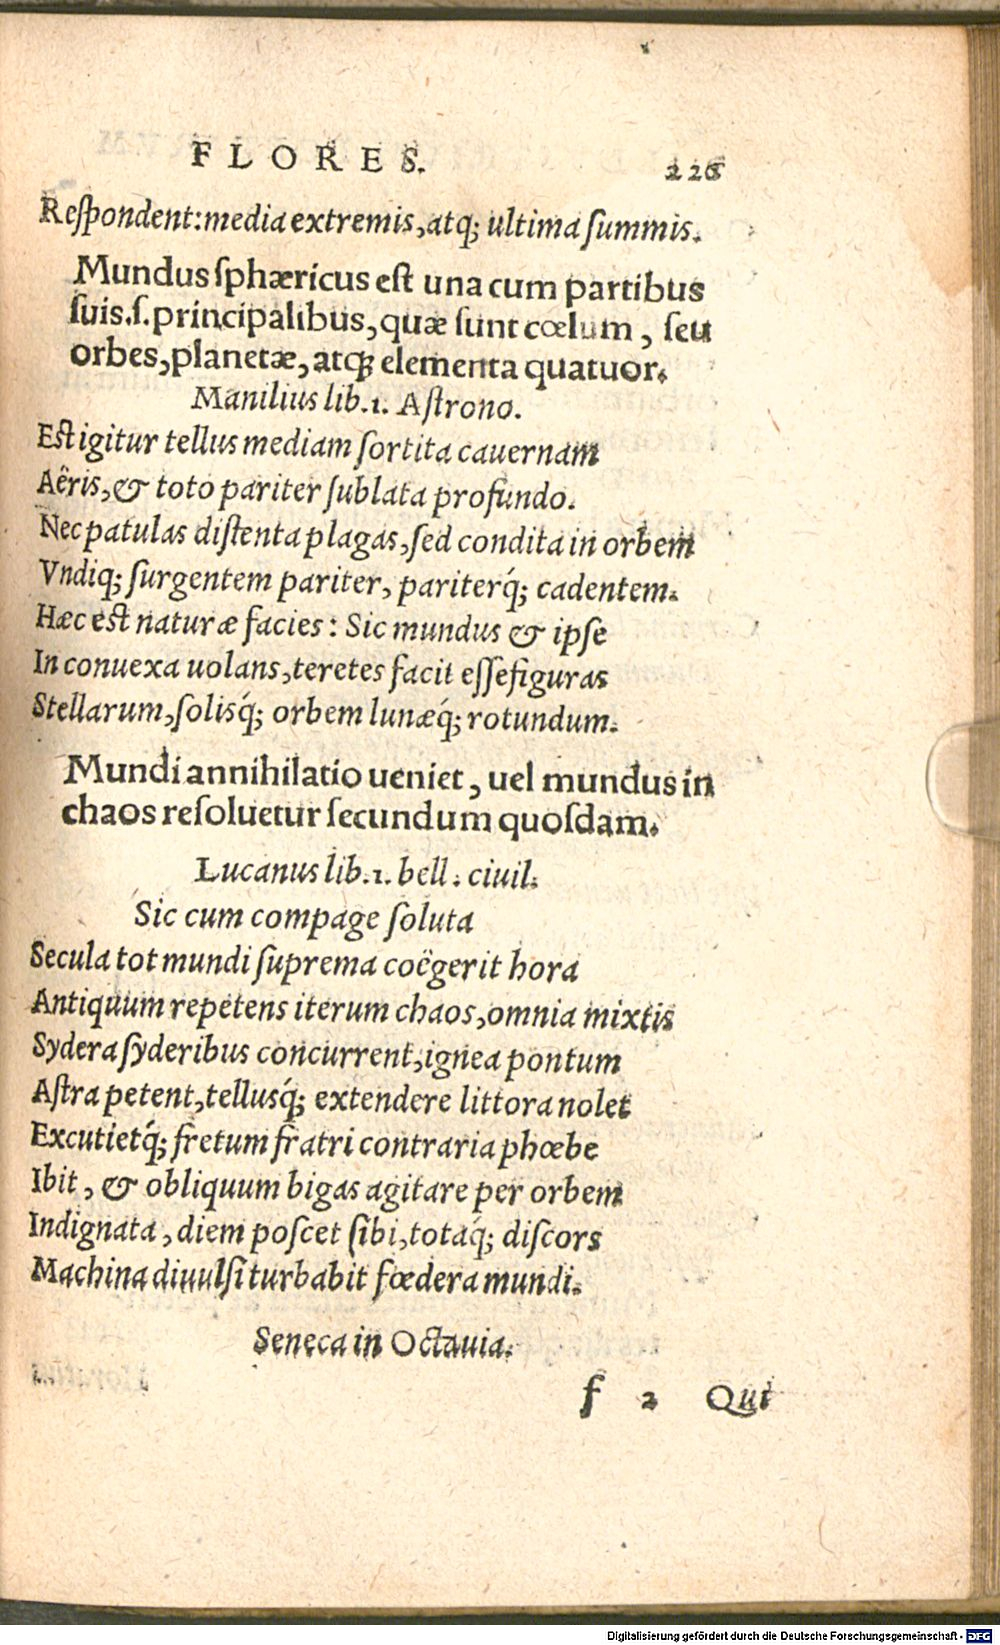 FLORES. 226
Reſpondent: media extremis, atq; ultima ſummis.
Mundus ſphæricus eſt una cum partibus
ſuis.ſ. principalibus, quæ ſunt cœlum, ſeu
orbes, planetæ, atq; elementa quatuor.
Manilius lib. 1. Aſtrono.
Eſt igitur tellus mediam ſortita cauernam
Aëris, & toto pariter ſublata profundo.
Nec patulas diſtenta plagas, ſed condita in orbem
Vndiq; ſurgentem pariter, pariterq́; cadentem.
Hæc eſt naturæ facies: Sic mundus & ipſe
In conuexa uolans, teretes facit eſſe figuras
Stellarum, ſolisq́; orbem lunæq́; rotundum.
Mundi annihilatio ueniet, uel mundus in
chaos reſoluetur ſecundum quoſdam.
Lucanus lib. 1. bell. ciuil.
Sic cum compage ſoluta
Secula tot mundi ſuprema coëgerit hora
Antiquum repetens iterum chaos, omnia mixtis
Sydera ſyderibus concurrent, ignea pontum
Aſtra petent, tellusq́; extendere littora nolet
Excutietq́; fretum fratri contraria phœbe
Ibit, & obliquum bigas agitare per orbem
Indignata, diem poſcet ſibi, totaq́; diſcors
Machina diuulſi turbabit fœdera mundi.
Seneca in Octauia.
f 2 Qui
Digitalisierung gefördert durch die Deutsche Forschungsgemeinschaft - DFG